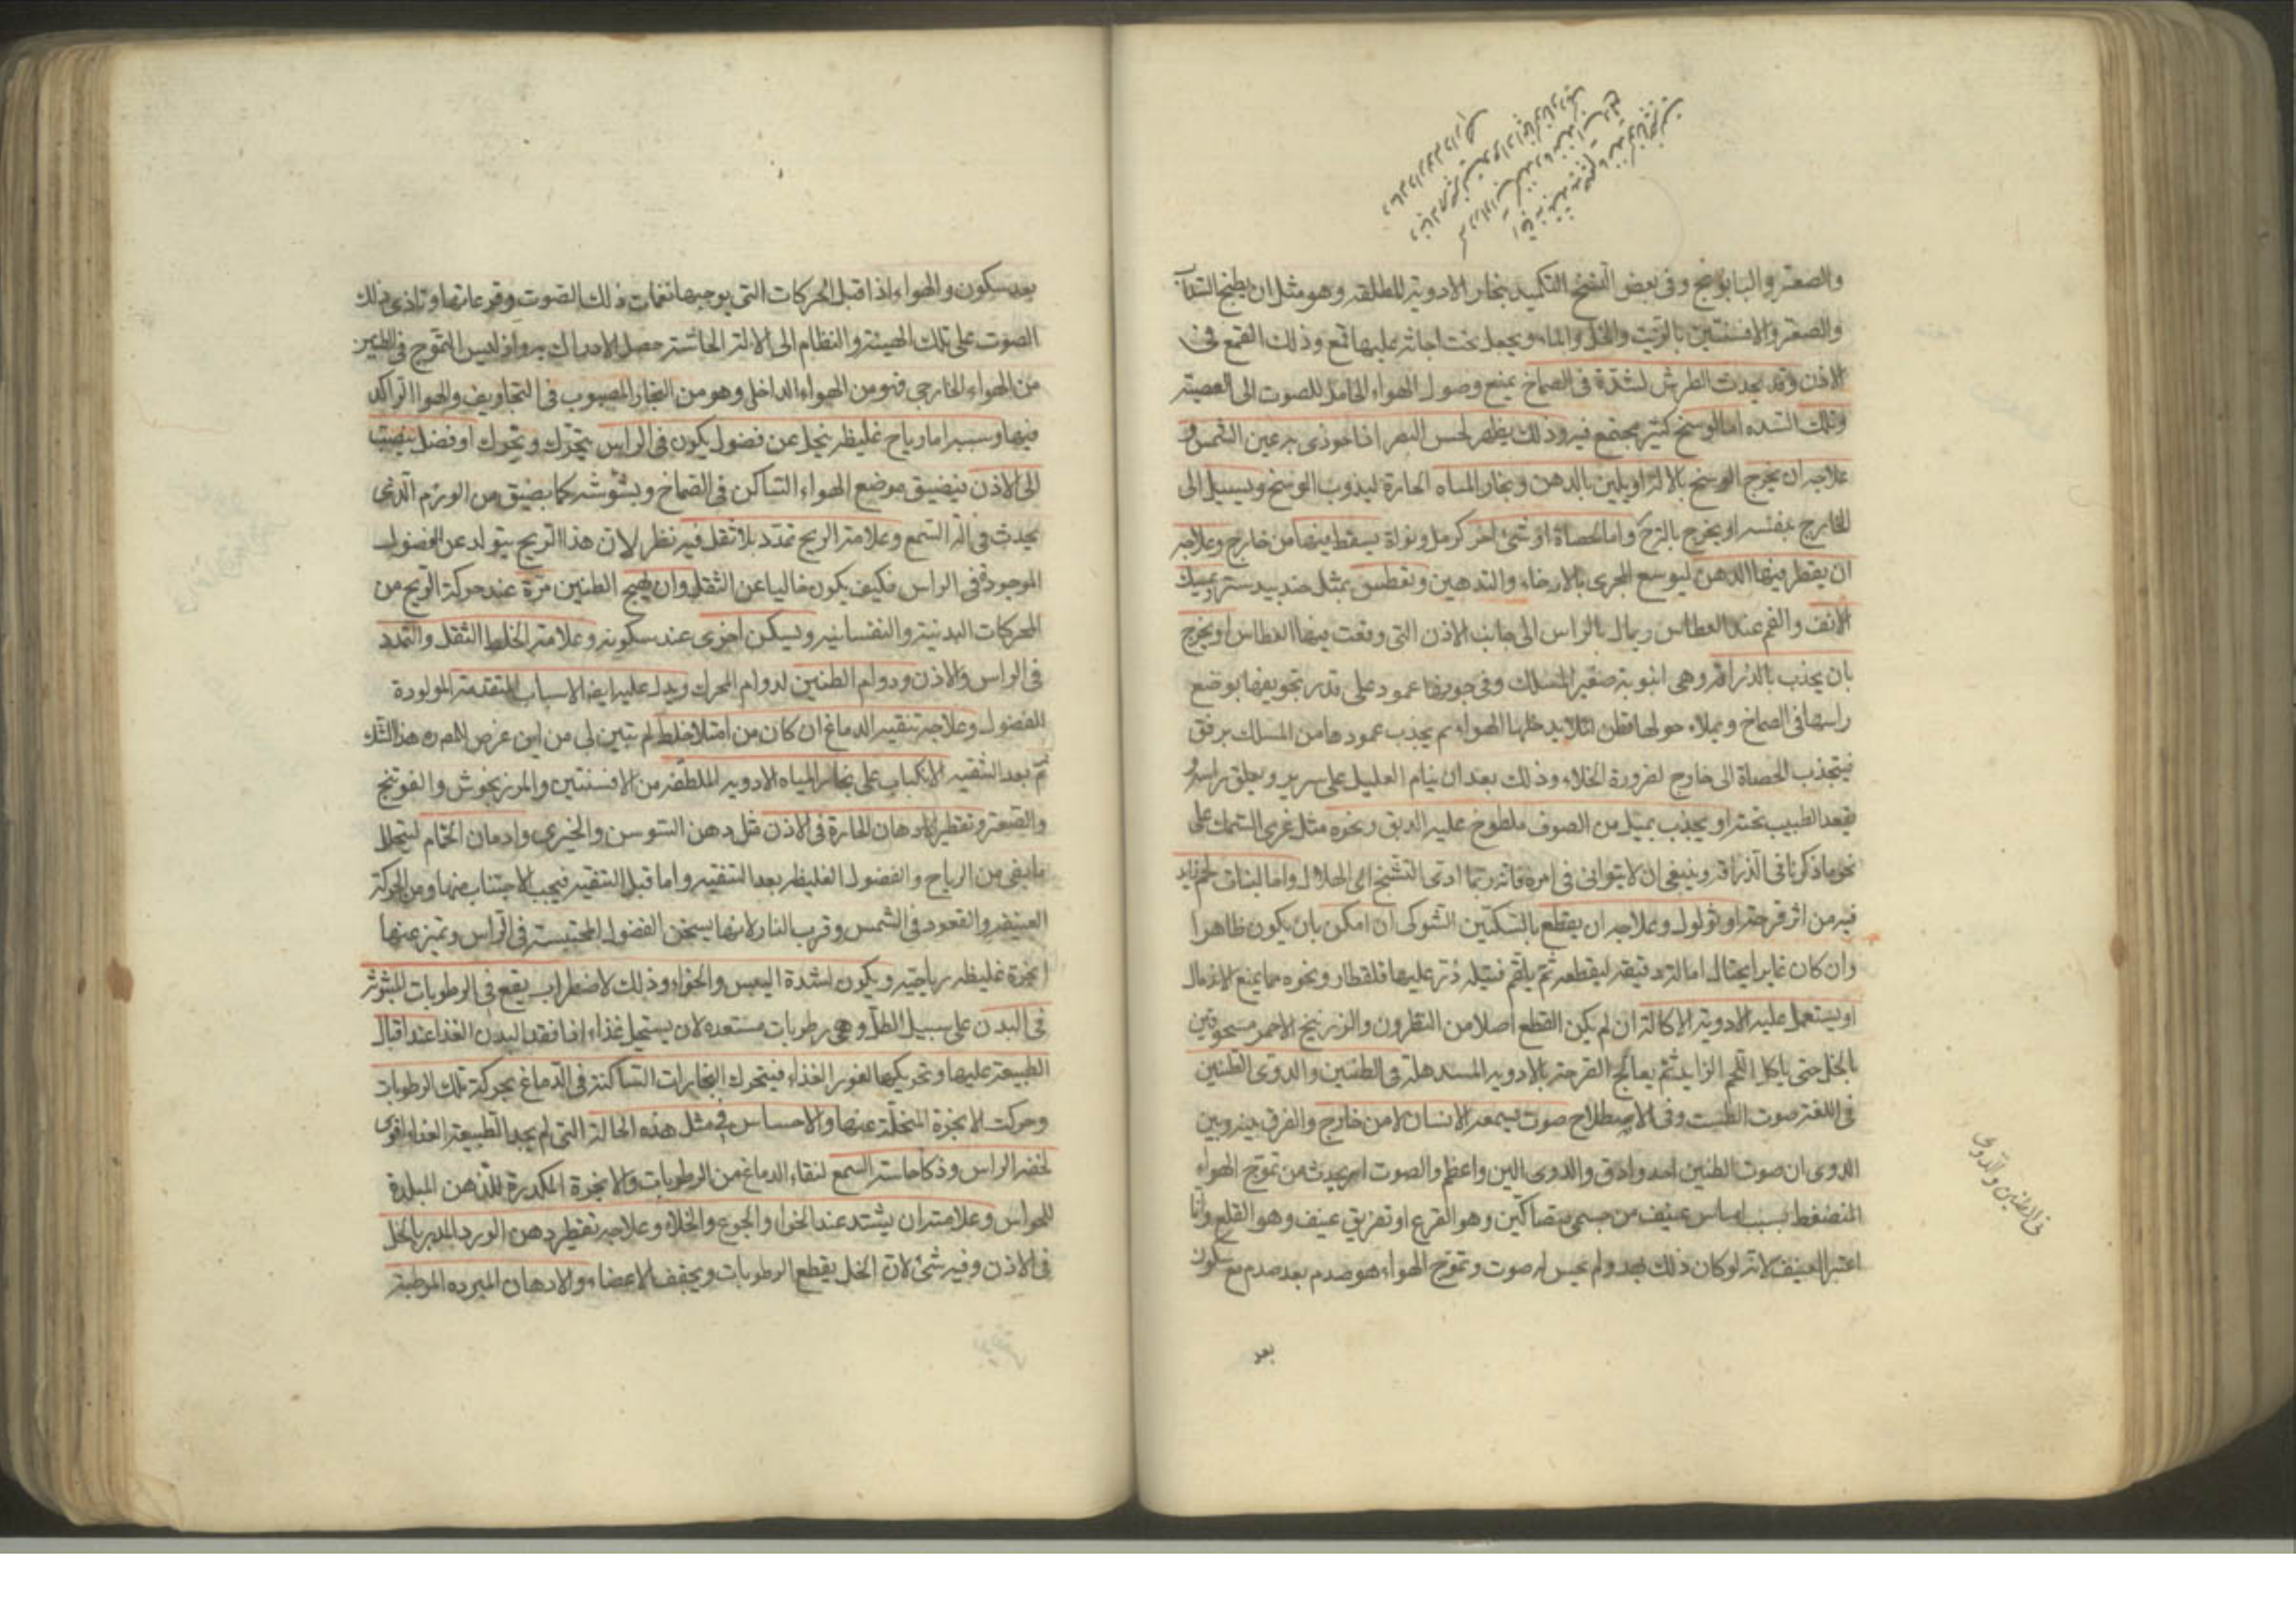 والصعتر والبابونج وفى بعض النسخ التكميد ببخار الادوية الملطفة وهو مثل ان يطبخ السذاب
والصعتر والافسنتين بالزيت والخل والماء ويجعل تحت اجانة عليها قمع وذلك القمع فى
الاذن وقد يحدث الطرش لسدة فى الصماخ يمنع وصول الهواء الحامل للصوت الى العصبة
وتلك السدة اما لوسخ كثير مجتمع فيه وذلك يظهر لحس البصر اذا حوذى به عين الشمس و
علاجه ان يخرج الوسخ بالالة او يلين بالدهن وبخار المياه الحارة ليذوب الوسخ ويسيل الى
الخارج بنفسه او يخرج بالزخ واما لحصاة او شئ اخر كرمل ونواة يسقط فيها من خارج وعلاجه
ان يقطر فيها الدهن ليوسع المجرى بالارخاء والتدهين وتعطيس بمثل جندبيدستر ويمسك
الانف والفم عند العطاس ويمال بالراس الى جانب الاذن التى وقعت فيها العطاس او يخرج
بان يجذب بالذراقة وهى انبوبة صغير المسلك وفى جوفها عمود على قدر تجويفها يوضع
راسها فى الصماخ ويملاء حولها قطن لئلا يدخلها الهواء ثم يجذب عمودها من المسلك برفق
فيتجذب الحصاة الى خارج لضرورة الخلاء وذلك بعد ان ينام العليل على سرير ويعلق راسه و
يقعد الطبيب تحته او يجذب بميل من الصوف ملطوخ عليه الدبق ونحوه مثل غرى السمك على
نحو ما ذكرنا فى الذراقة وينبغى ان لا يتوانى فى امره فانه ربما ادى التشنج الى الهلاك واما لنبات لحم زايد
فيه من اثر قرحة او ثولول وعلاجه ان يقطع بالسكين الشوكى ان امكن بان يكون ظاهرا
وان كان غايرا يحتال امالة دقيقة ليقطعه ثم يلقم فتيلة ذر عليها قلقطار ونحوه مما يمنع الاندمال
او يستعمل عليه الادوية الاكالة ان لم يكن القطع اصلا من النطرون والزرنيخ الاحمر مسحوقين
بالخل حتى ياكل اللحم الزايد ثم يعالج القرحة بالادوية المندملة فى الطنين والدوى الطنين
فى اللغة صوت الطست وفى الاصطلاح صوت يسمعه الانسان لا من خارج والفرق بينه وبين
الدوى ان صوت الطنين احد وادق والدوى الين واعظم والصوت امر يحدث من تموج الهواء
المنضغط بسبب امساس عنيف من جسمى متصاكين وهو القرع او تفريق عنيف وهو القلع وانا
اعتبر العنيف لانه لو كان ذلك بهدو لم يحس له صوت وتموج الهواء هو صدم بعد صدم مع سكون
بعد
فى الطنين والدوى
بعد سكون والهواء اذا قبل الحركات التى يوجبها نغمات ذلك الصوت وقرعاتها وتادى ذلك
الصوت على تلك الهيئة والنظام الى الالة الحاسة حصل الادراك به واذ ليس التموج فى الطنين
من الهواء الخارجى فهو من الهواء الداخل وهو من البخار المصبوب فى التجاويف والهوا الراكد
فيها وسببه اما رياح غليظة ينحل عن فضول يكون فى الراس يتحرك ويحرك او فضل ينصب
الى الاذن فيضيق موضع الهواء الساكن فى الصماخ ويشوشه كما يضيق من الورم الذى
يحدث فى الة السمع وعلامة الريح تمدد بلا ثقل فيه نظر لان هذا الريح يتولد عن الفضول
الموجودة فى الراس فكيف يكون خاليا عن الثقل وان يهيج الطنين مرة عند حركة الريح من
المحركات البدنية والنفسانية ويسكن اخرى عند سكونه وعلامة الخلط الثقل والتمدد
فى الراس والاذن ودوام الطنين لدوام المحرك ويدل عليه ايضا الاسباب المتقدمة المولودة
للفضول وعلاجه تنقية الدماغ ان كان من امتلاء خلط لم يتبين لى من اين عرض للمص هذا الشك
ثم بعد التنقية الانكباب على بخار المياه الادوية الملطفة من الافسنتين والمرزنجوش والفوتنج
والصعتر وتقطير الادهان الحارة فى الاذن مثل دهن السوسن والخيرى وادمان الحمام ليتحلل
ما بقى من الرياح والفضول الغليظة بعد التنقية واما قبل التنقية فيجب الاجتناب منها ومن الحركة
العنيفة والقعود فى الشمس وقرب النار لانها يسخن الفضول المحتبسة فى الراس وتميز عنها
ابخرة غليظة رياحية ويكون لشدة اليبس والخواء وذلك لاضطراب يقع فى الرطوبات المبثوثة
فى البدن على سبيل الطل وهى رطوبات مستعدة لان يستحيل غذاء اذا فقد البدن الغذا عند اقبال
الطبيعة عليها وتحريكها لغور الغذاء فيتحرك البخارات الساكنة فى الدماغ بحركة تلك الرطوبات
وحركت الابخرة المنحلة عنها والاحساس فى مثل هذه الحالة التى لم يجد الطبيعة الغذاء اقوى
لخفة الراس وذكا حاسة السمع لنقاء الدماغ من الرطوبات والابخرة المكدرة للذهن المبلدة
للحواس وعلامته ان يشتد عند الخوا والجوع والخلاء وعلاجه تقطير دهن الورد المدبر بالخل
فى الاذن وفيه شئ لان الخل يقطع الرطوبات ويجفف الاعضاء والادهان المبردة المرطبة